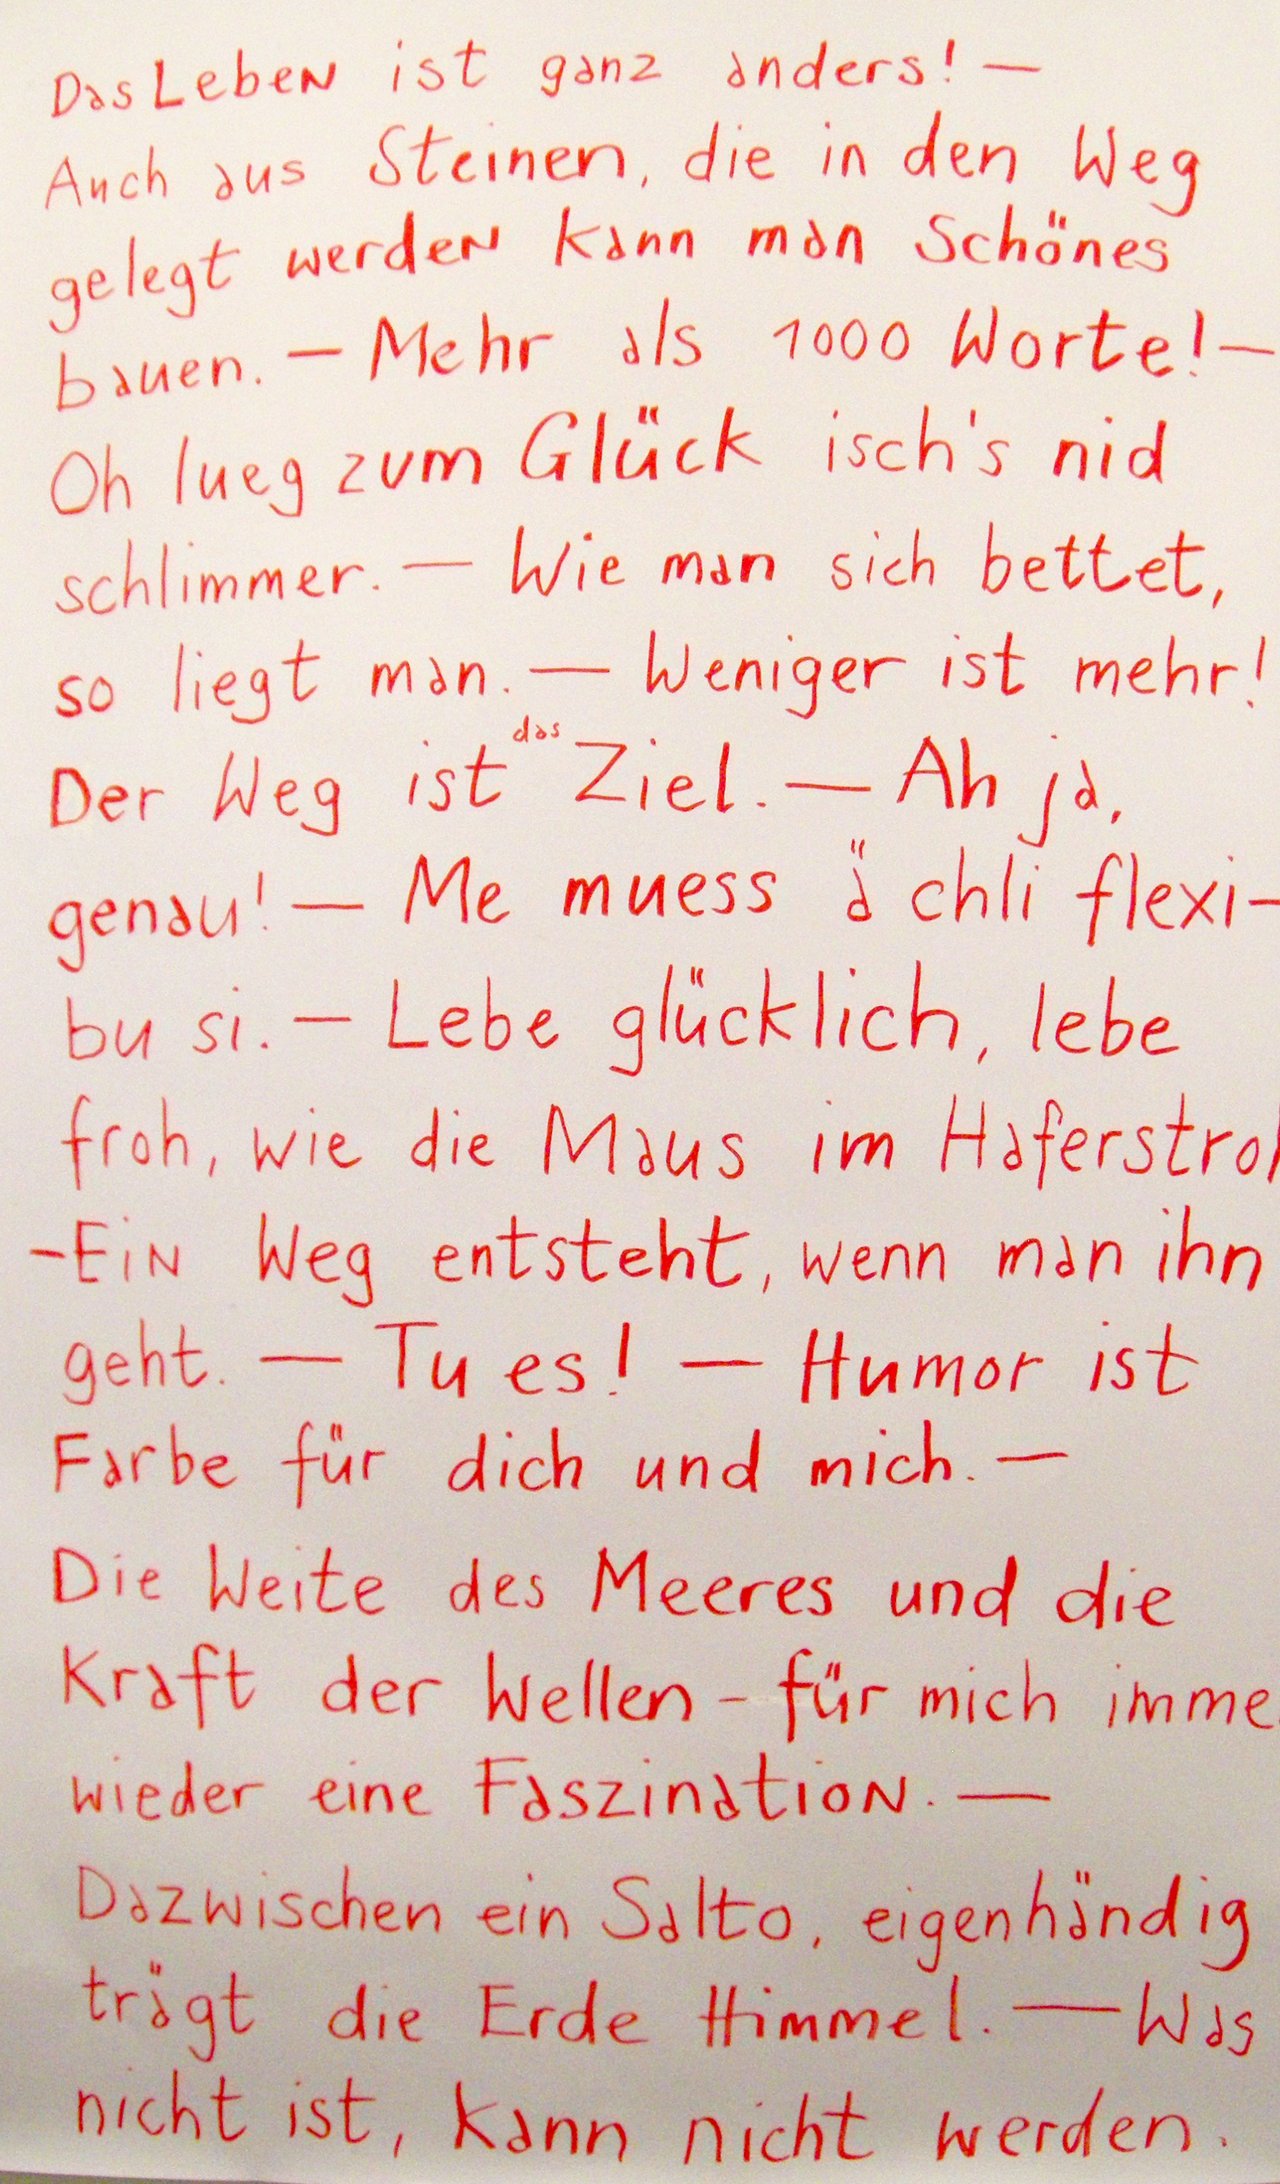 Das Leben ist ganz anders! —
Auch aus Steinen, die in den Weg
gelegt werden kann man Schönes
bauen. — Mehr als 1000 Worte! —
Oh lueg zum Glück isch's nid
schlimmer. — Wie man sich bettet,
so liegt man. — Weniger ist mehr!
Der Weg ist das Ziel. — Ah ja,
genau! — Me muess ä chli flexi-
bu si. — Lebe glücklich, lebe
froh, wie die Maus im Haferstroh
- Ein Weg entsteht, wenn man ihn
geht. — Tu es! — Humor ist
Farbe für dich und mich. —
Die Weite des Meeres und die
Kraft der Wellen - für mich immer
wieder eine Faszination. —
Dazwischen ein Salto, eigenhändig
trägt die Erde Himmel. — Was
nicht ist, kann nicht werden.